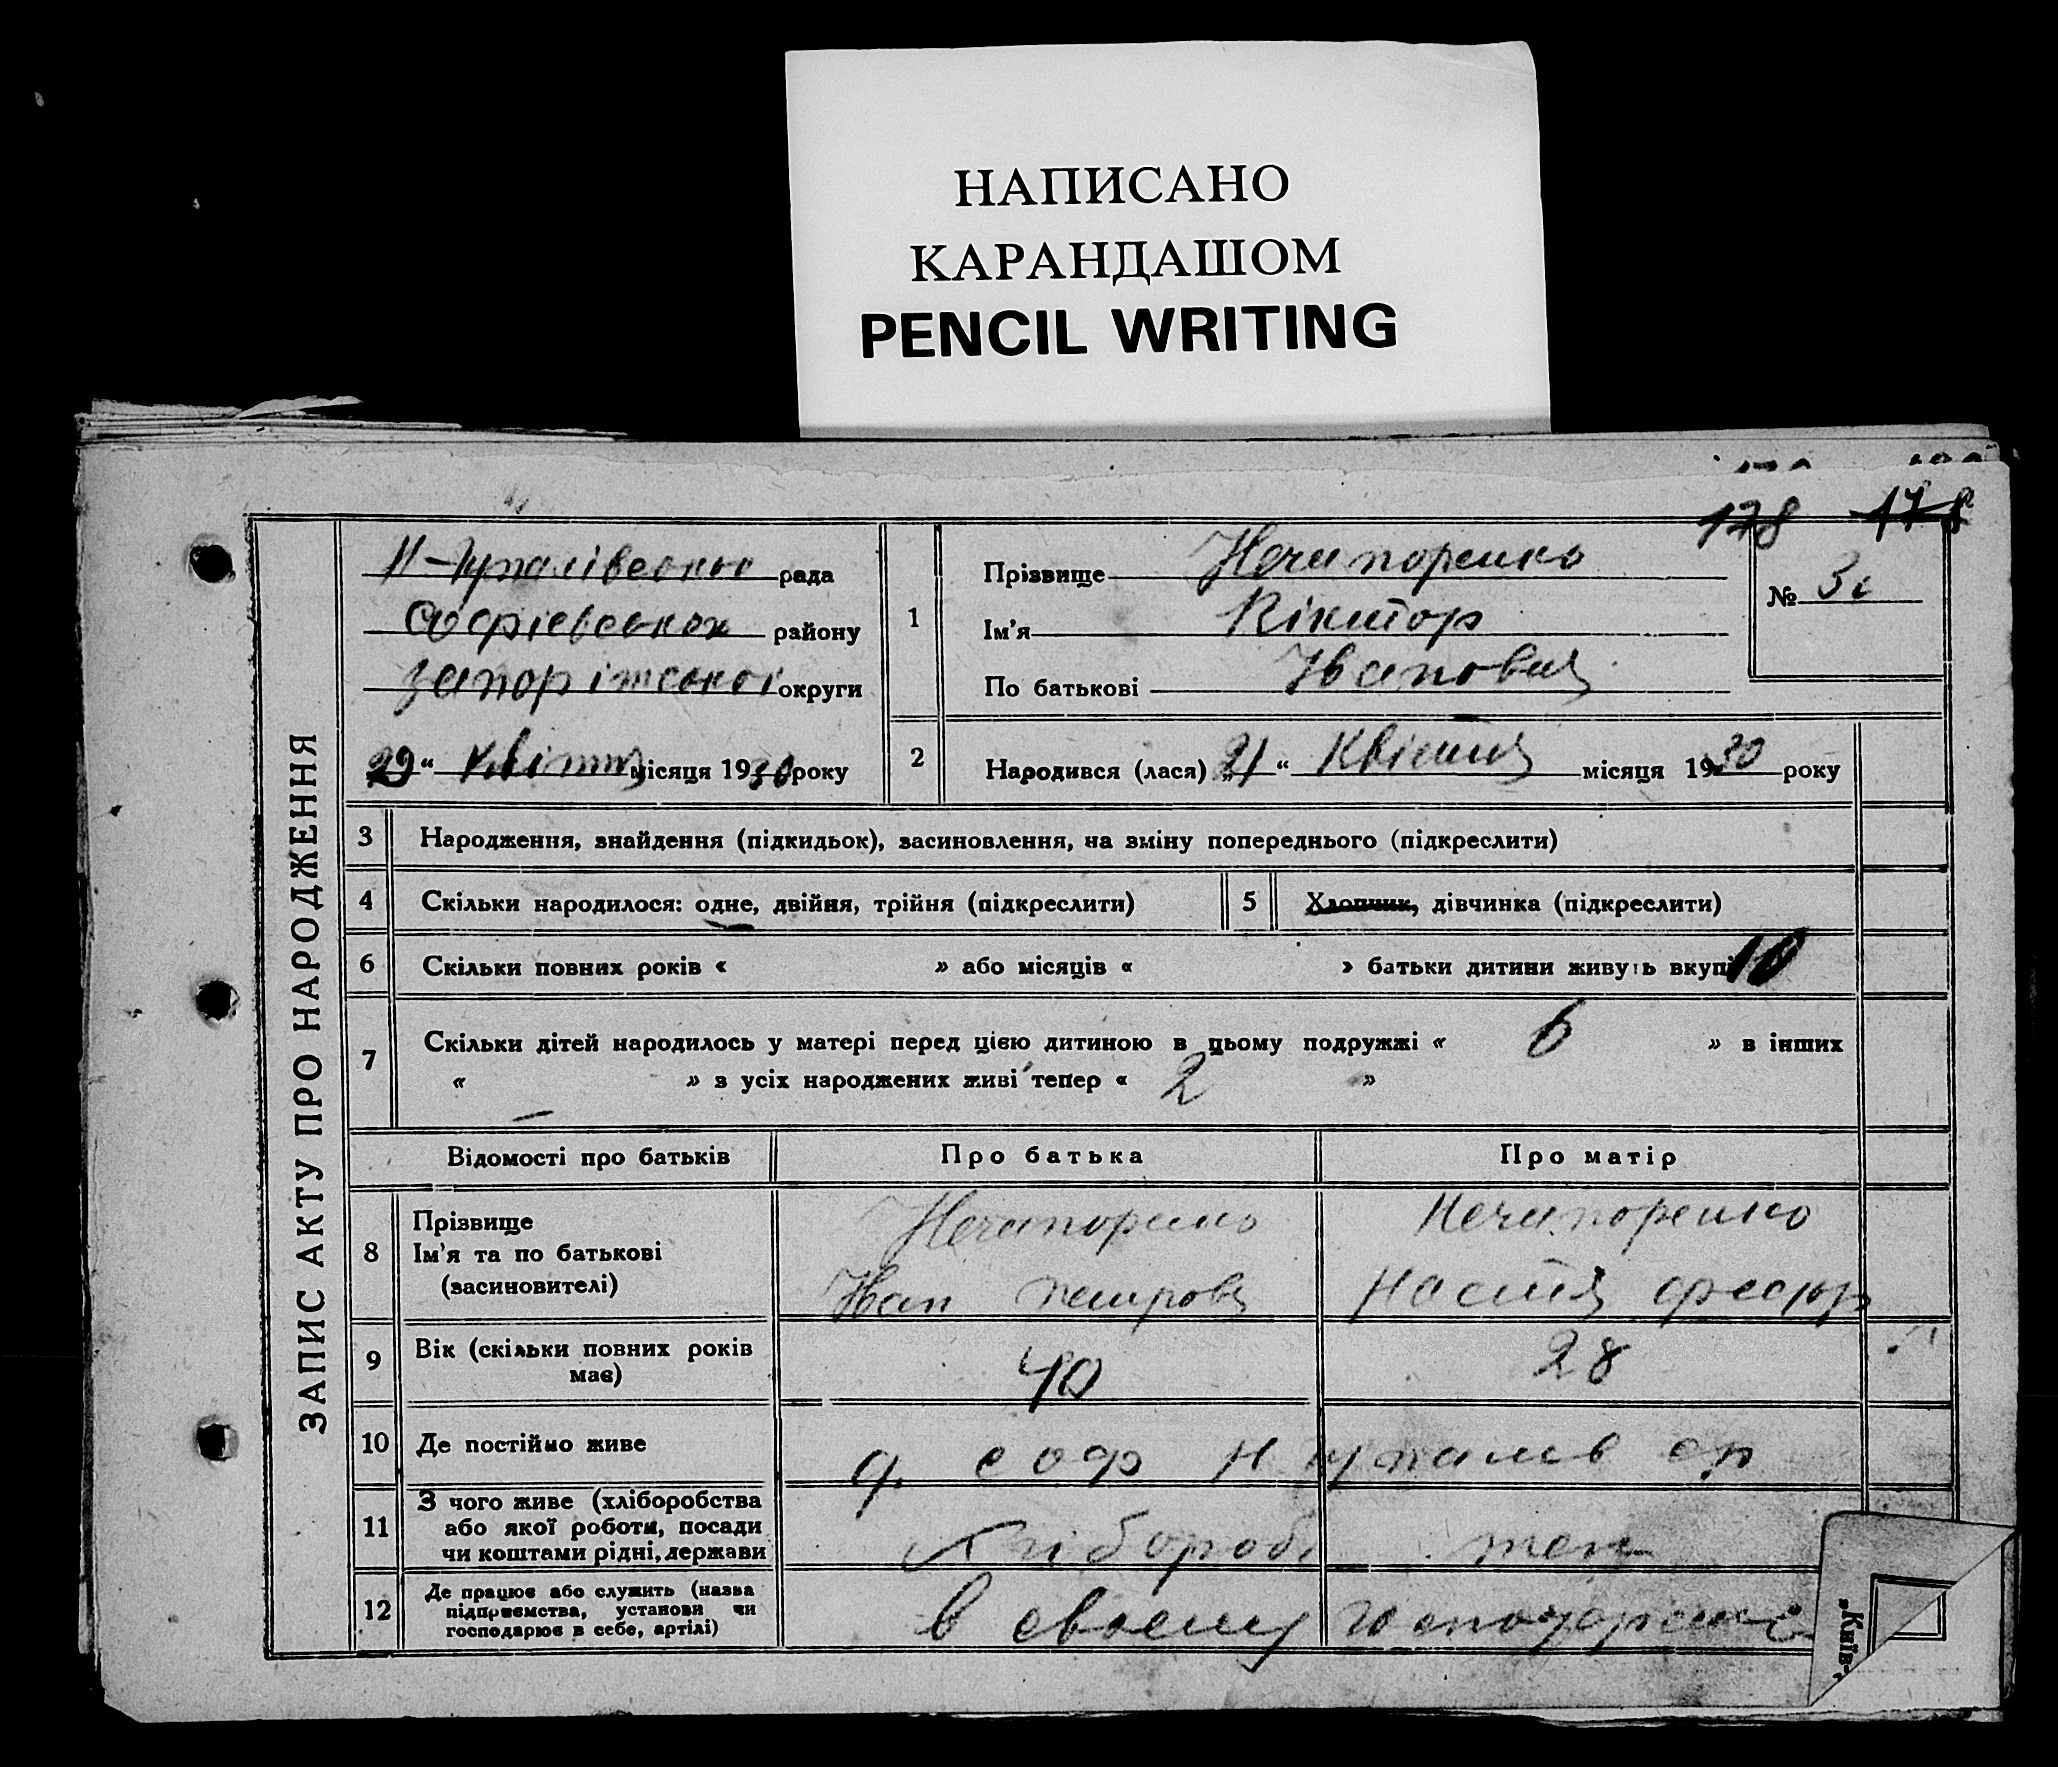 НАПИСАНО
КАРАНДАШОМ
PENCIL WRITING
178 178
ЗАПИС АКТУ ПРО НАРОДЖЕННЯ
рада
району
округи
29 " квітня місяця 1930 року
1
Прізвище Нечипоренко
Ім'я Віктор
По батькові Іванович
№
2
Народився (лася) „21 " Квітня місяця 1930 року
3 Народження, знайдення (підкидьок), засиновлення, на зміну попереднього (підкреслити)
4 Скільки народилося: одне, двійня, трійня (підкреслити) 5 Хлопчик, дівчинка (підкреслити)
6 Скільки повних років « » або місяців « » батьки дитини живуть вкупі 10
7 Скільки дітей народилось у матері перед цією дитиною в цьому подружжі « 6 » в інших
« » з усіх народжених живі тепер « 2 »
Відомості про батьків Про батька Про матір
8 Прізвище
Ім'я та по батькові
(засиновителі)
Нечипоренко
Иван Петров
Нечипоренко
Настя Федор
9 Вік (скільки повних років
має)
40 28
10 Де постійно живе
11 З чого живе (хліборобства
або якої роботи, посади
чи коштами рідні, держави
Хлібороб
12 Де працює або служить (назва
підприємства, установи чи
господарює в себе, артілі)
в своему
„Київ-